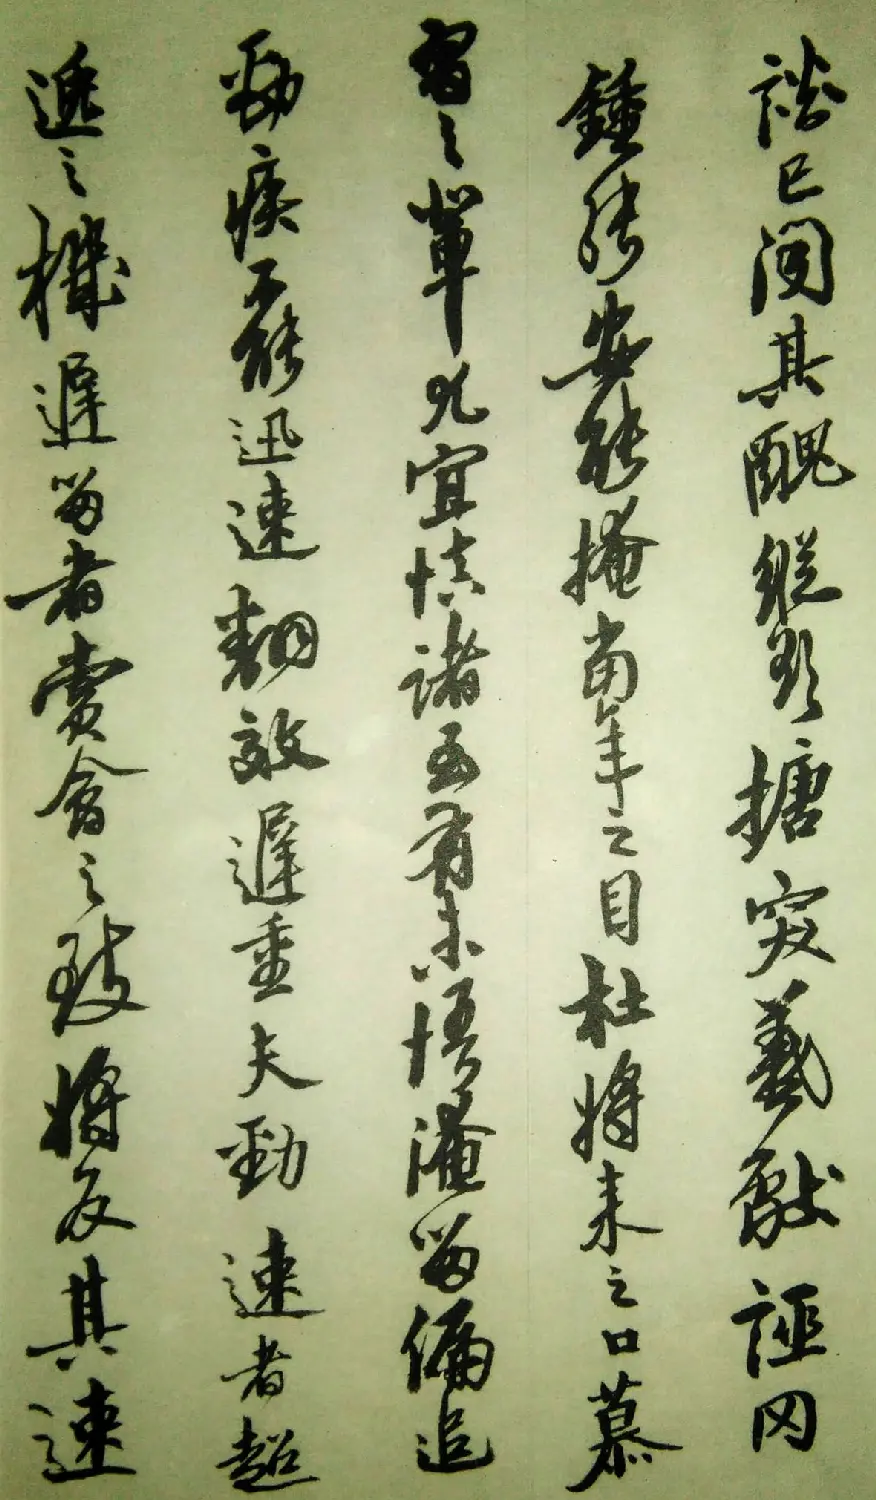 其醜縱欲搪突羲獻誣罔
鍾張安能掩當年之目杜將來之口慕
習之輩尤宜慎諸至有未悟淹留偏追
勁疾不能迅速翻效遲重夫勁速者超
逸之機遲留者賞會之致將反其速